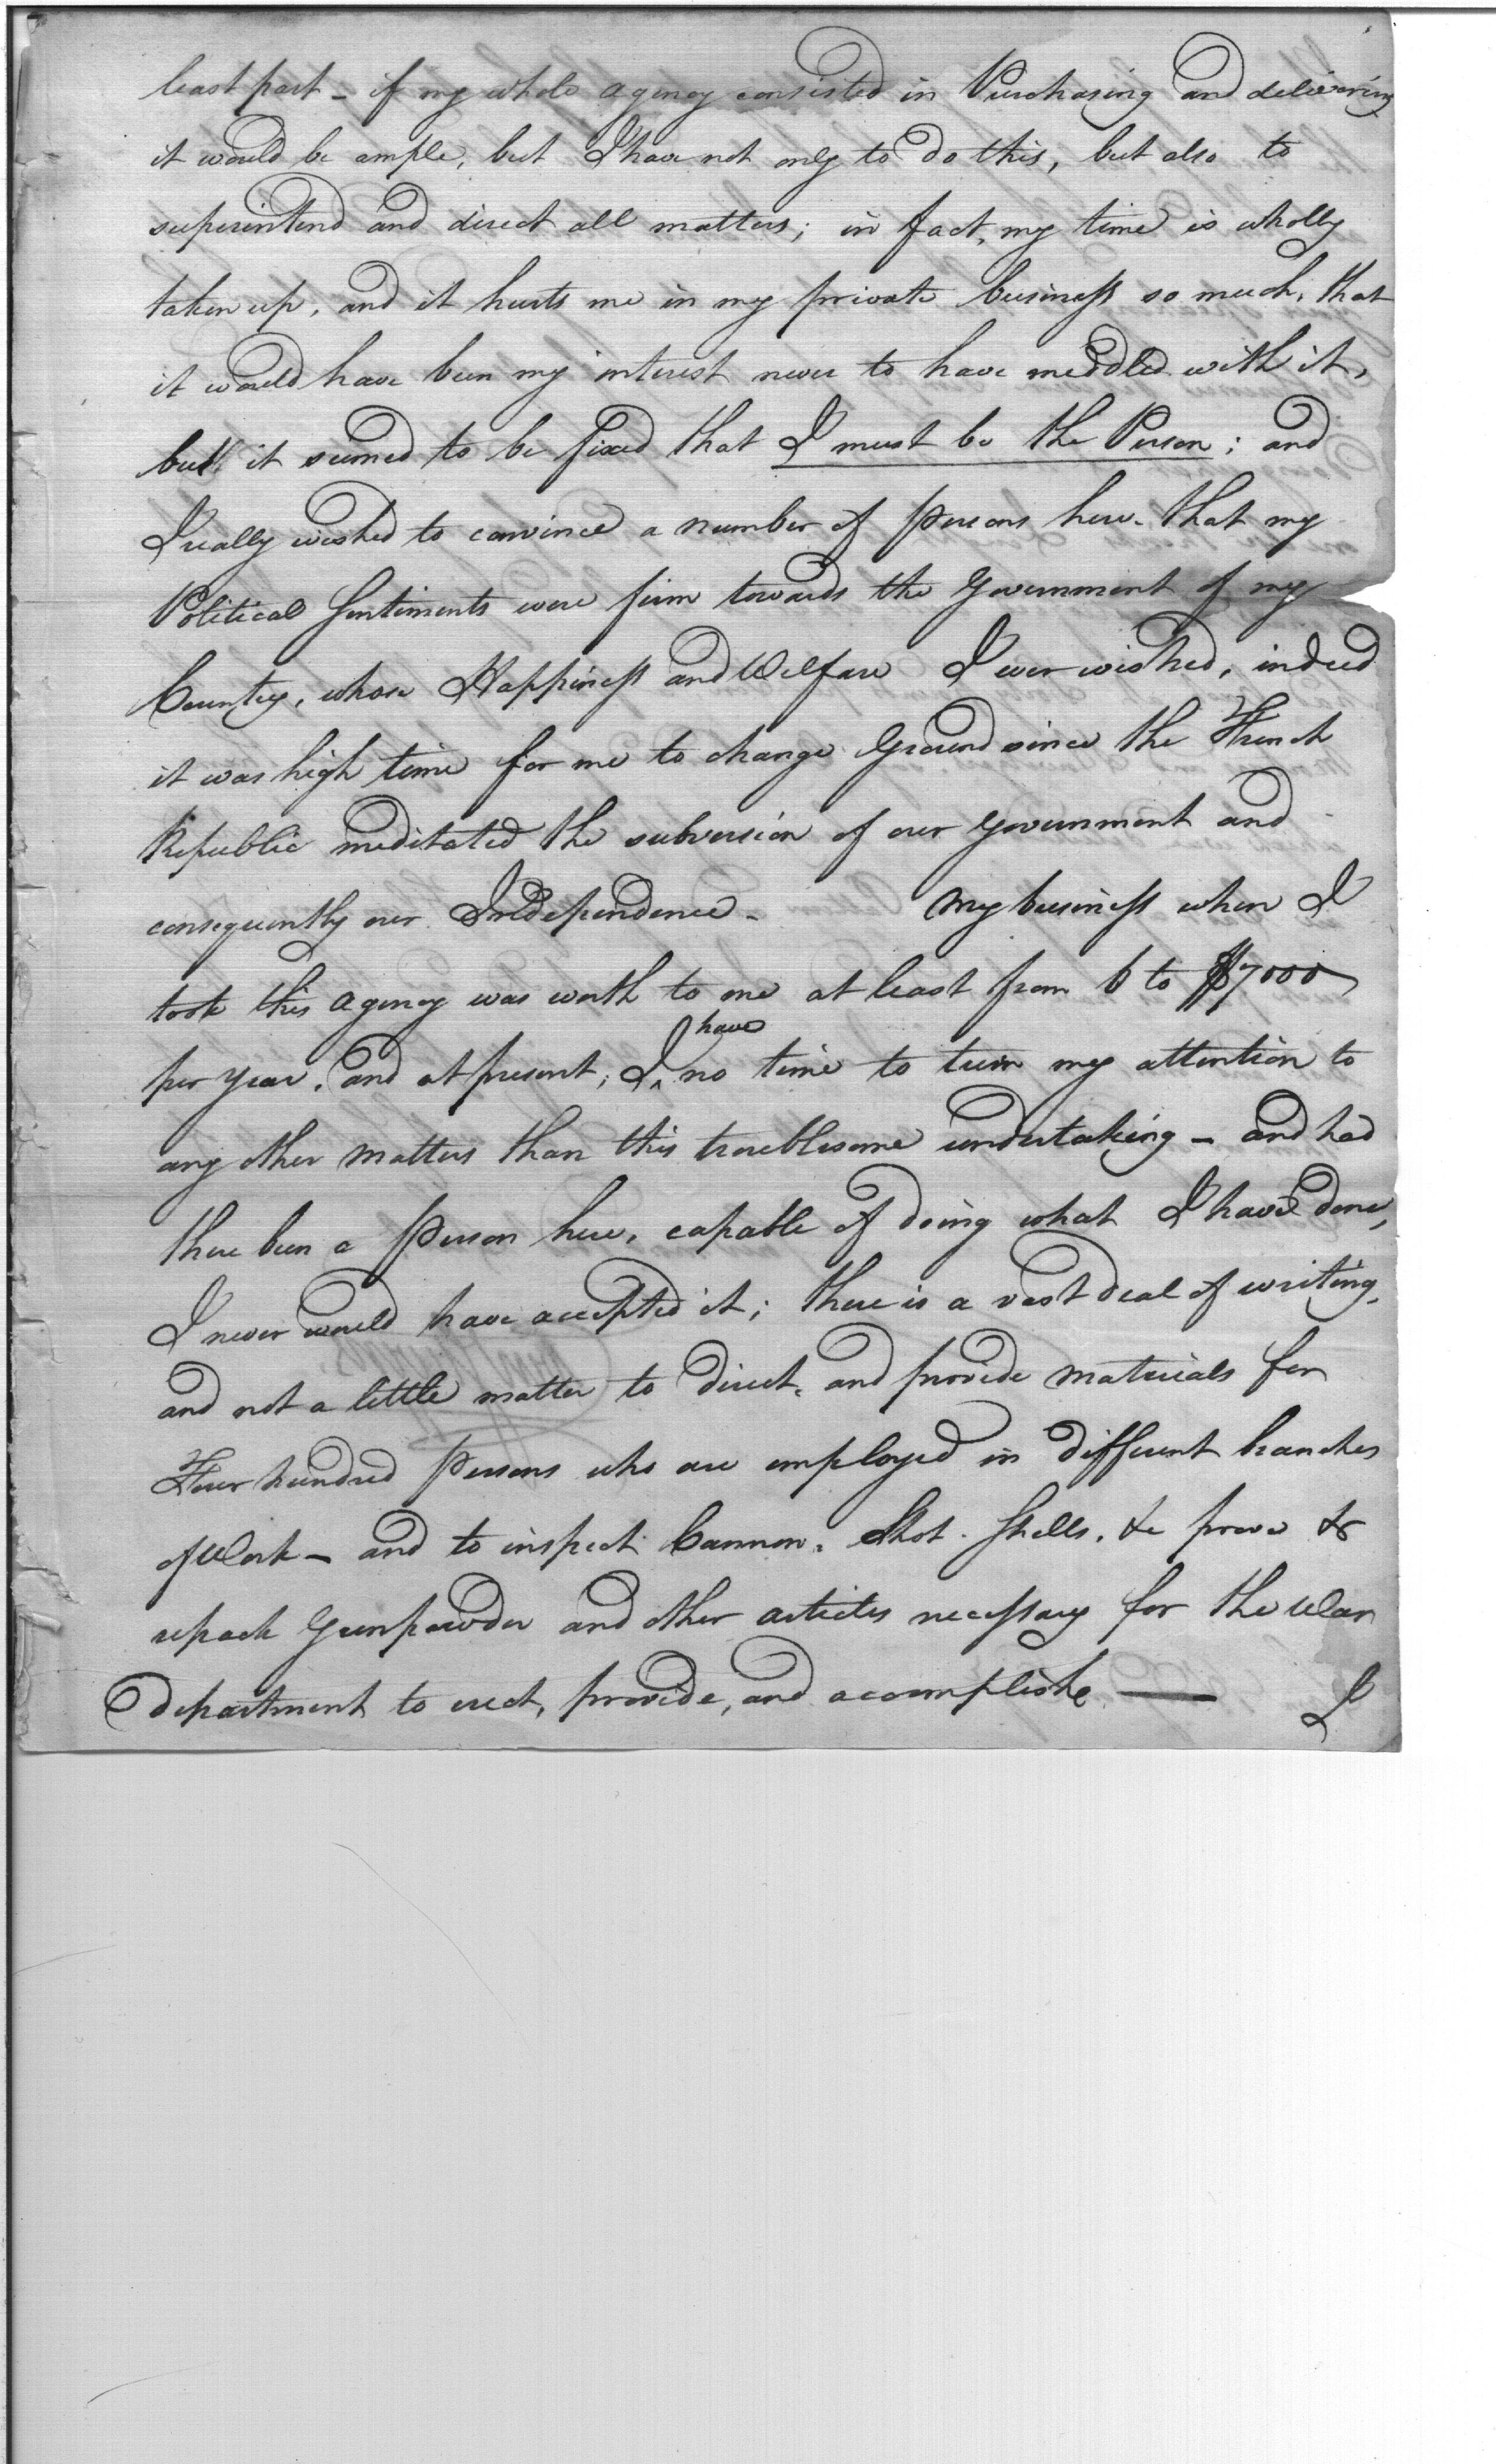 least part - if my whole agency consisted in Purchasing and delivering
it would be ample, but I have not only to do this, but also to
superintend and direct all matters; in fact, my time is wholly
taken up, and it hurts me in my private business so much, that
it would have been my interest never to have meddled with it,
but it seemed to be fixed that I must be the Person; and
I really wished to convince a number of persons here. that my
Political Sentiments were firm towards the Government of my
Country, whose Happiness and Welfare I ever wished, indeed
it was high time for me to change Ground since the French
Republic meditated the subversion of our Government and
consequently our Independence - My business when I
took this agency was worth to me at least from 6 to $7000
per year, and at present, I ^have no time to turn my attention to
any other matters than this troublesome undertaking - and had
there been a person here, capable of doing what I have done,
I never would have accepted it; there is a vast deal of writing,
and not a little matter to direct, and provide materials for
Four hundred persons who are employed in different branches
of Work - and to inspect Cannon, Shot. Shells, &c prove &
repack Gunpowder and other articles necessary for the War
department to erect, provide, and accomplish —
I